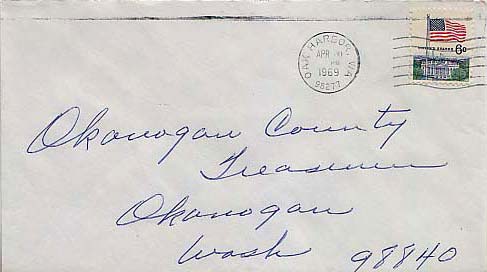 OAK HARBOR, WA
APR
PM
1969
98277
UNITED STATES 6¢
Okanogan County
Treasurer
Okanogan
Wash 98840